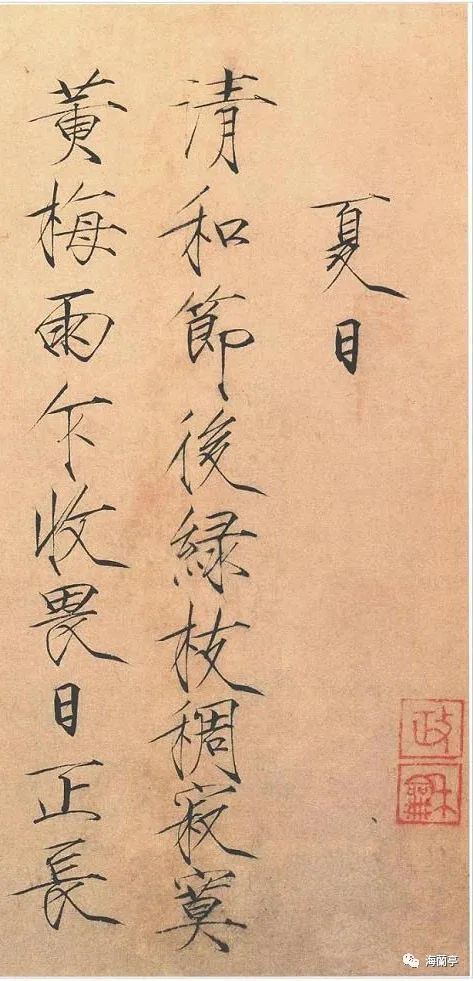 夏日
清和節後綠枝稠寂寞
黃梅雨乍收畏日正長
政龢
海蘭亭